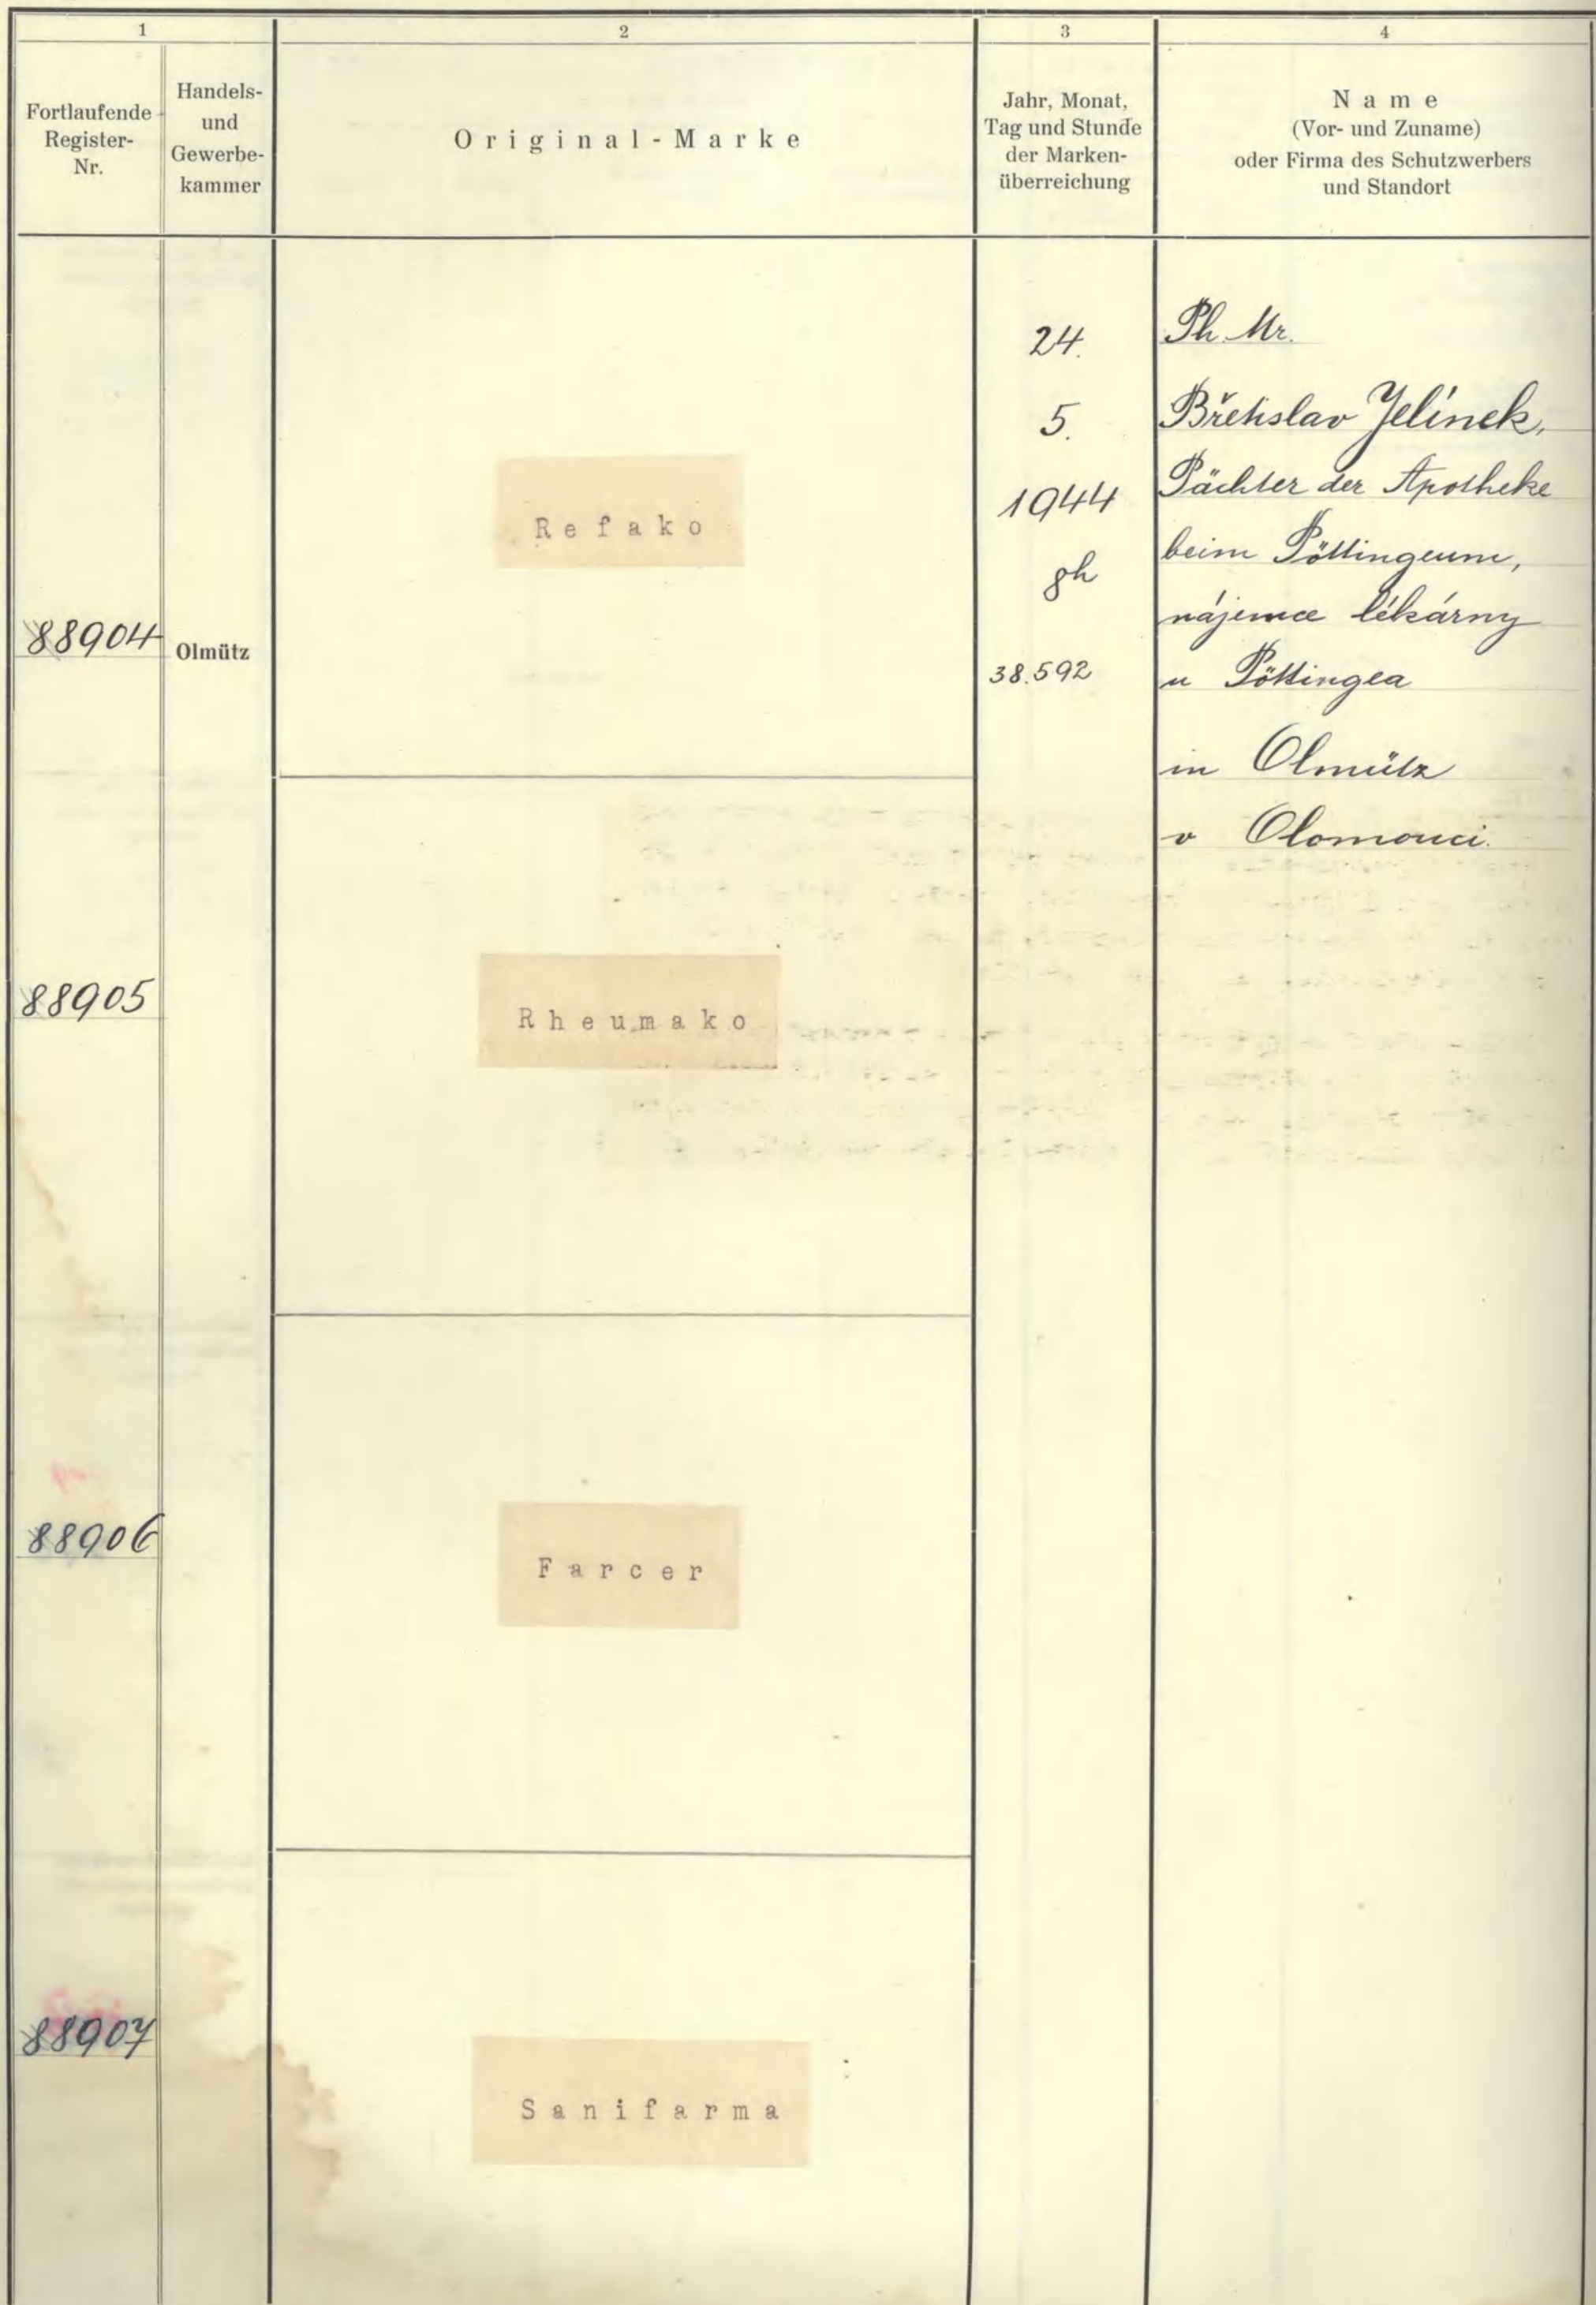 1
2
3
4
Fortlaufende
Register-
Nr.
Handels-
und
Gewerbe-
kammer
Original-Marke
Jahr, Monat,
Tag und Stunde
der Marken-
überreichung
Name
(Vor- und Zuname)
oder Firma des Schutzwerbers
und Standort
88904
Olmütz
Refako
24.
5.
1944
8h
38.592
Ph. Mr.
Břetislav Jelínek,
Pächter der Apotheke
beim Pöttingeum,
nájemce lékárny
u Pöttingea
in Olmütz
v Olomouci.
88905
Rheumako
88906
Farcer
88907
Sanifarma